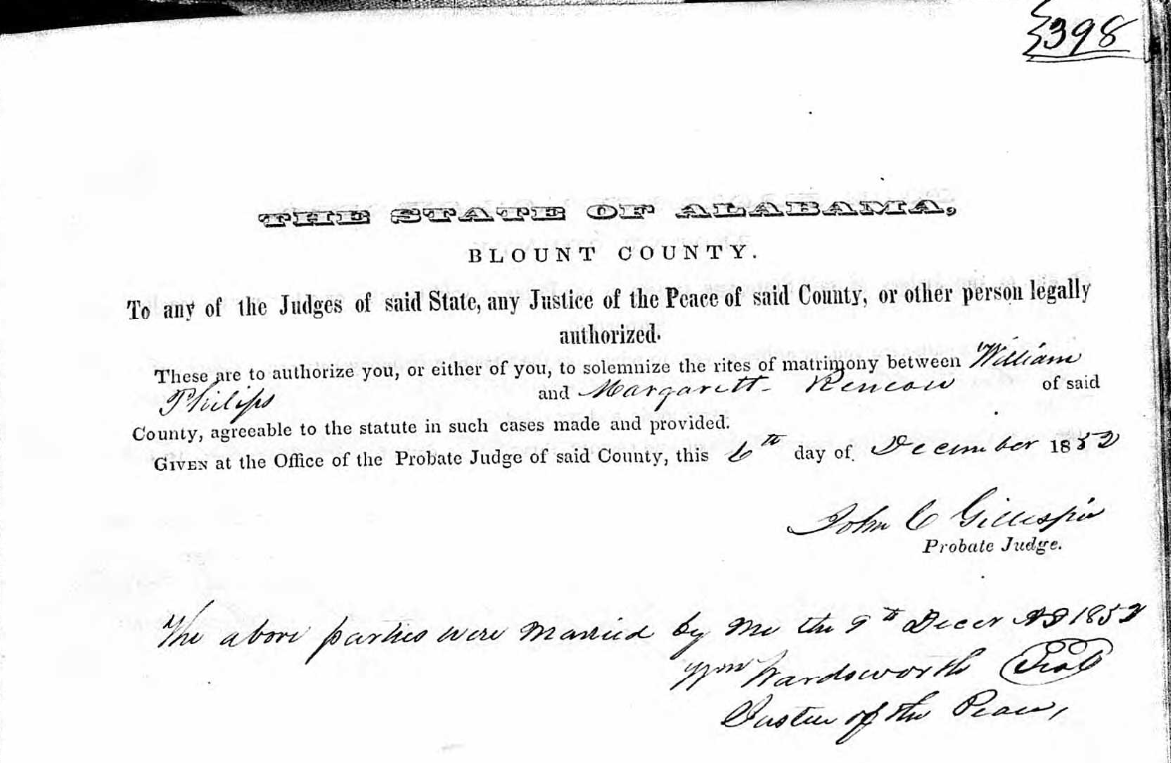 398
THE STATE OF ALABAMA,
BLOUNT COUNTY.
To any of the Judges of said State, any Justice of the Peace of said County, or other person legally
authorized.
These are to authorize you, or either of you, to solemnize the rites of matrimony between William
Philips and Margarett of said
County, agreeable to the statute in such cases made and provided.
GIVEN at the Office of the Probate Judge of said County, this 6th day of December 1852
John C Gillespie
Probate Judge.
The above parties were Married by Me the 9th Decer AD 1852
Wm Wardsworth Seal
Justice of the Peace,